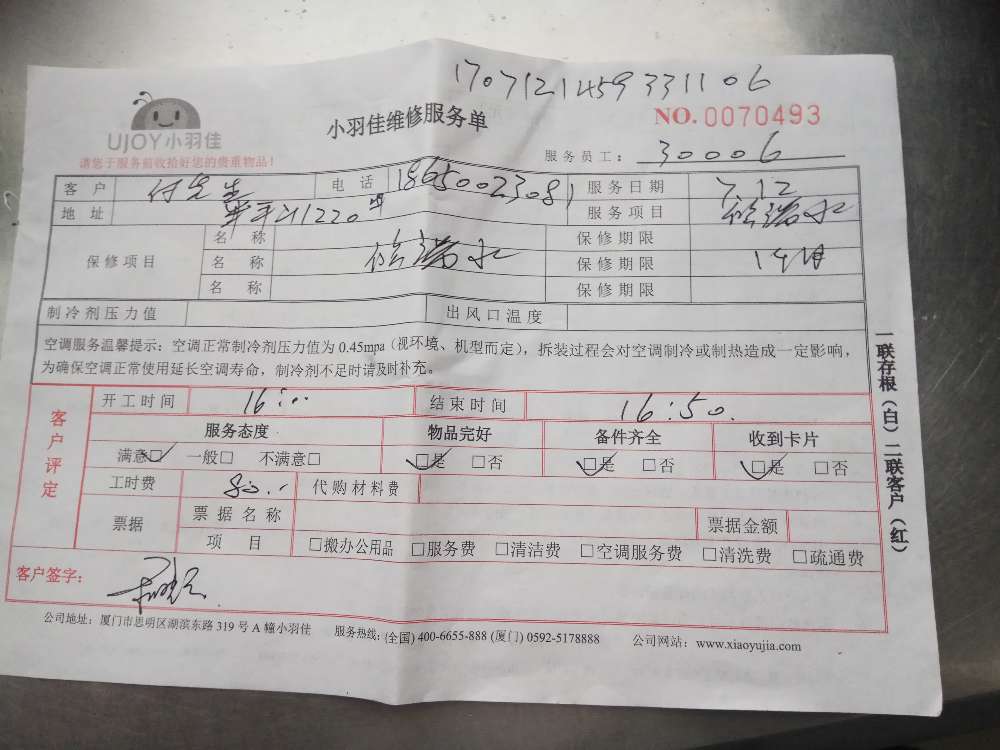 1707121459331106
UJOY小羽佳
小羽佳维修服务单
NO.0070493
请您于服务前收拾好您的贵重物品！
服务员工： 30006
客户 付先生 电话 18650023081 服务日期 7.12
地址 1220 服务项目
名称 保修期限
保修项目 名称 保修期限
名称 保修期限
制冷剂压力值 出风口温度
空调服务温馨提示：空调正常制冷剂压力值为 0.45mpa（视环境、机型而定），拆装过程会对空调制冷或制热造成一定影响，
为确保空调正常使用延长空调寿命，制冷剂不足时请及时补充。
一联存根（白）二联客户（红）
客户评定
开工时间 16:00 结束时间 16:50.
服务态度 物品完好 备件齐全 收到卡片
满意□ 一般□ 不满意□ □是 □否 □是 □否 □是 □否
工时费 80.- 代购材料费
票据 票据名称 票据金额
项目 □搬办公用品 □服务费 □清洁费 □空调服务费 □清洗费 □疏通费
客户签字：
公司地址：厦门市思明区湖滨东路 319 号 A 幢小羽佳 服务热线：(全国) 400-6655-888 (厦门) 0592-5178888 公司网站：www.xiaoyujia.com